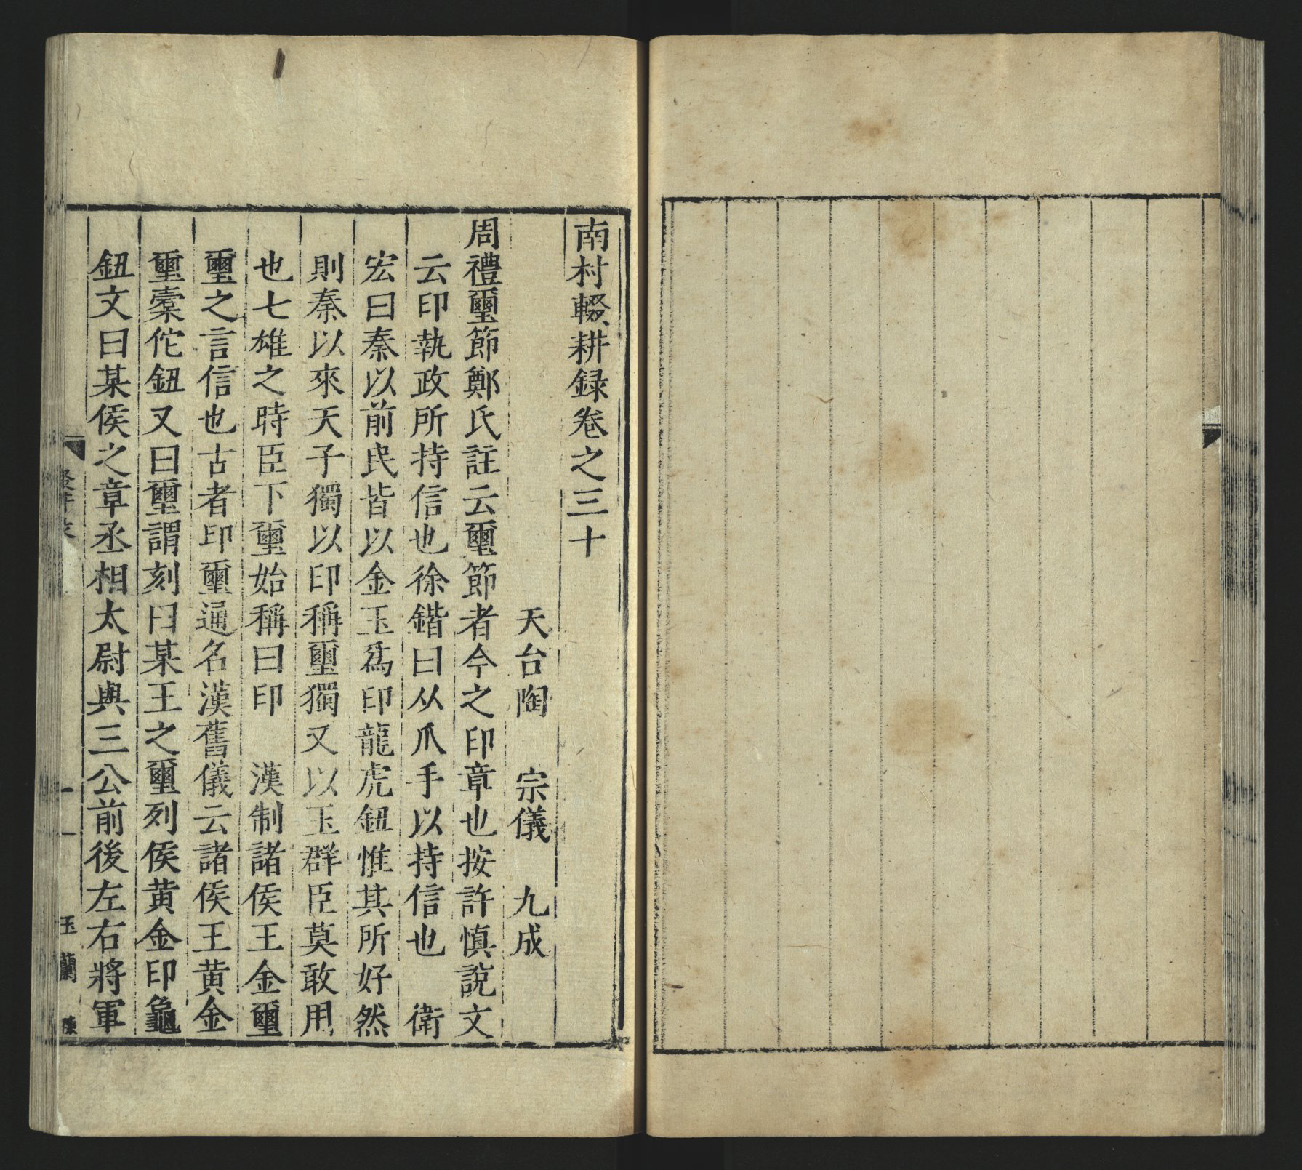 南村輟耕録卷之三十
天台陶　宗儀　九成
周禮璽節鄭氏註云璽節者今之印章也按許慎說文
云印執政所持信也徐鍇曰从爪手以持信也　衛
宏曰秦以前民皆以金玉爲印龍虎鈕惟其所好然
則秦以來天子獨以印稱璽獨又以玉群臣莫敢用
也七雄之時臣下璽始稱曰印　漢制諸侯王金璽
璽之言信也古者印璽通名漢舊儀云諸侯王黃金
璽橐佗鈕又曰璽謂刻曰某王之璽列侯黃金印龜
鈕文曰某侯之章丞相太尉與三公前後左右將軍
玉蘭